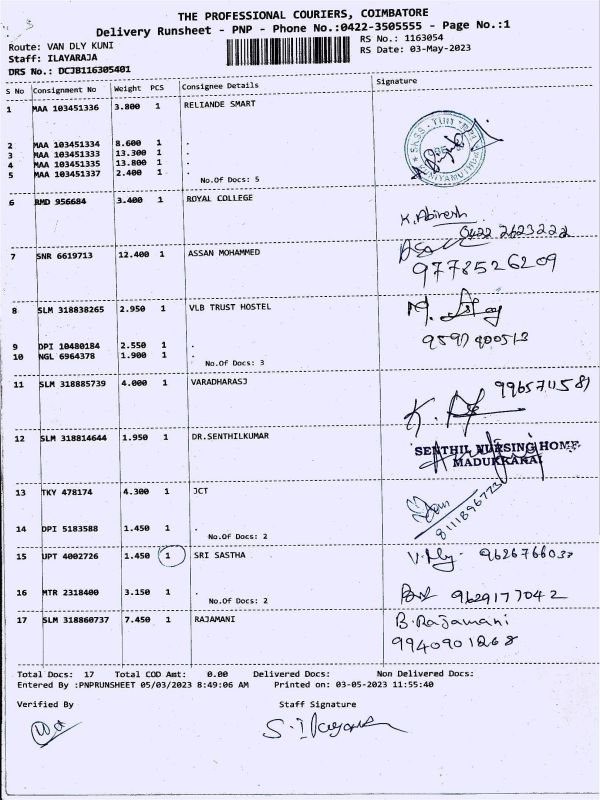 THE PROFESSIONAL COURIERS, COIMBATORE
Delivery Runsheet - PNP - Phone No.:0422-3505555 - Page No.:1
Route: VAN DLY KUNI
RS No.: 1163054
Staff: ILAYARAJA
RS Date: 03-May-2023
DRS No.: DCJB116305401
S No Consignment No Weight PCS Consignee Details Signature
1 MAA 103451336 3.800 1 RELIANDE SMART
2 MAA 103451334 8.600 1 .
3 MAA 103451333 13.300 1 .
4 MAA 103451335 13.800 1 .
5 MAA 103451337 2.400 1 .
No.Of Docs: 5
KUNIYAMUTHUR
6 RMD 956684 3.400 1 ROYAL COLLEGE
K. Abinesh
0422 2623222
7 SNR 6619713 12.400 1 ASSAN MOHAMMED
9778526209
8 SLM 318838265 2.950 1 VLB TRUST HOSTEL
9 DPI 10480184 2.550 1 .
10 NGL 6964378 1.900 1 .
No.Of Docs: 3
9597400513
11 SLM 318885739 4.000 1 VARADHARASJ
12 SLM 318814644 1.950 1 DR.SENTHILKUMAR
SENTHIL NURSING HOME
MADUKKARAI
13 TKY 478174 4.300 1 JCT
8111896723
14 DPI 5183588 1.450 1 .
No.Of Docs: 2
15 UPT 4002726 1.450 1 SRI SASTHA
16 MTR 2318400 3.150 1 .
No.Of Docs: 2
9629177042
17 SLM 318860737 7.450 1 RAJAMANI
B. Rajamani
9940901268
Total Docs: 17 Total COD Amt: 0.00 Delivered Docs: Non Delivered Docs:
Entered By :PNPRUNSHEET 05/03/2023 8:49:06 AM Printed on: 03-05-2023 11:55:40
Verified By Staff Signature